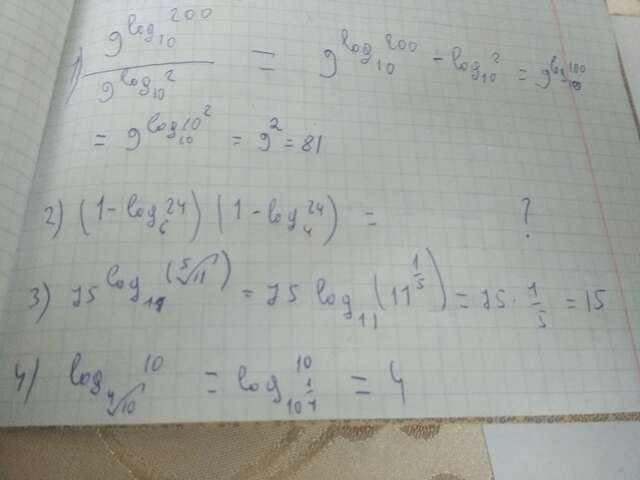 1) 9^log_10 200 / 9^log_10 2 = 9^log_10 200 - log_10 2 = 9^log_10 100
= 9^log_10 10^2 = 9^2 = 81
2) (1 - log_6 24) (1 - log_4 24) = ?
3) 75 log_11 (⁵√11) = 75 log_11 (11^1/5) = 75 · 1/5 = 15
4) log_⁴√10 10 = log_10^1/4 10 = 4